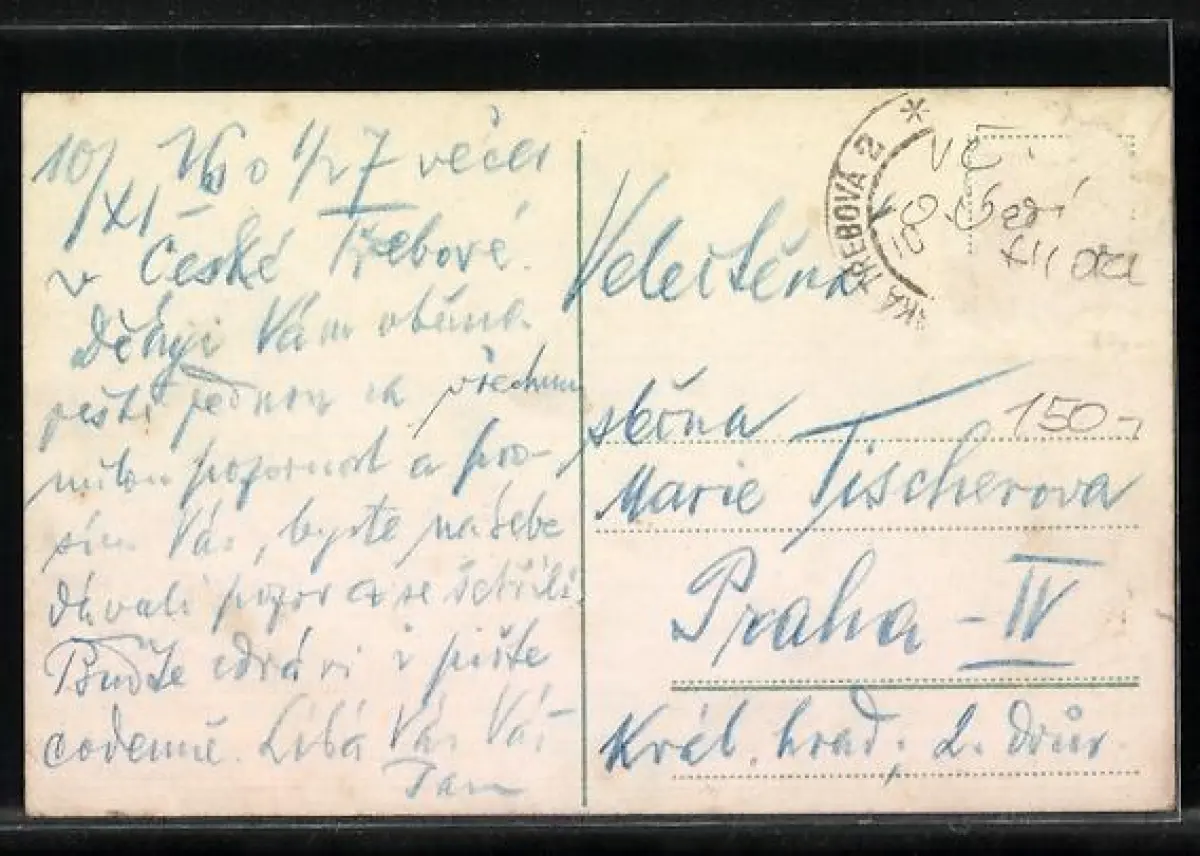 10/XI o 1/2 7 večer
v České Třebové.
Děkuji Vám
ještě jednou za všechnu
milou pozornost a pro-
sím Vás, byste na sebe
dávali pozor a se šetřili.
Buďte zdrávi i pište
codenně. Líbá Vás Váš
ČESKÁ TŘEBOVÁ 2
Velectěná
slečna
150,-
Marie Tischerova
Praha - IV
Král. hrad, 2. dvůr